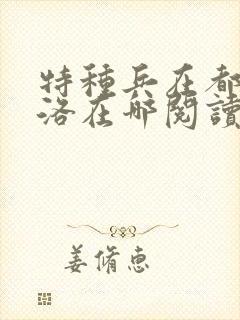 特種兵在都
洛在哪閱讀
姜脩惠